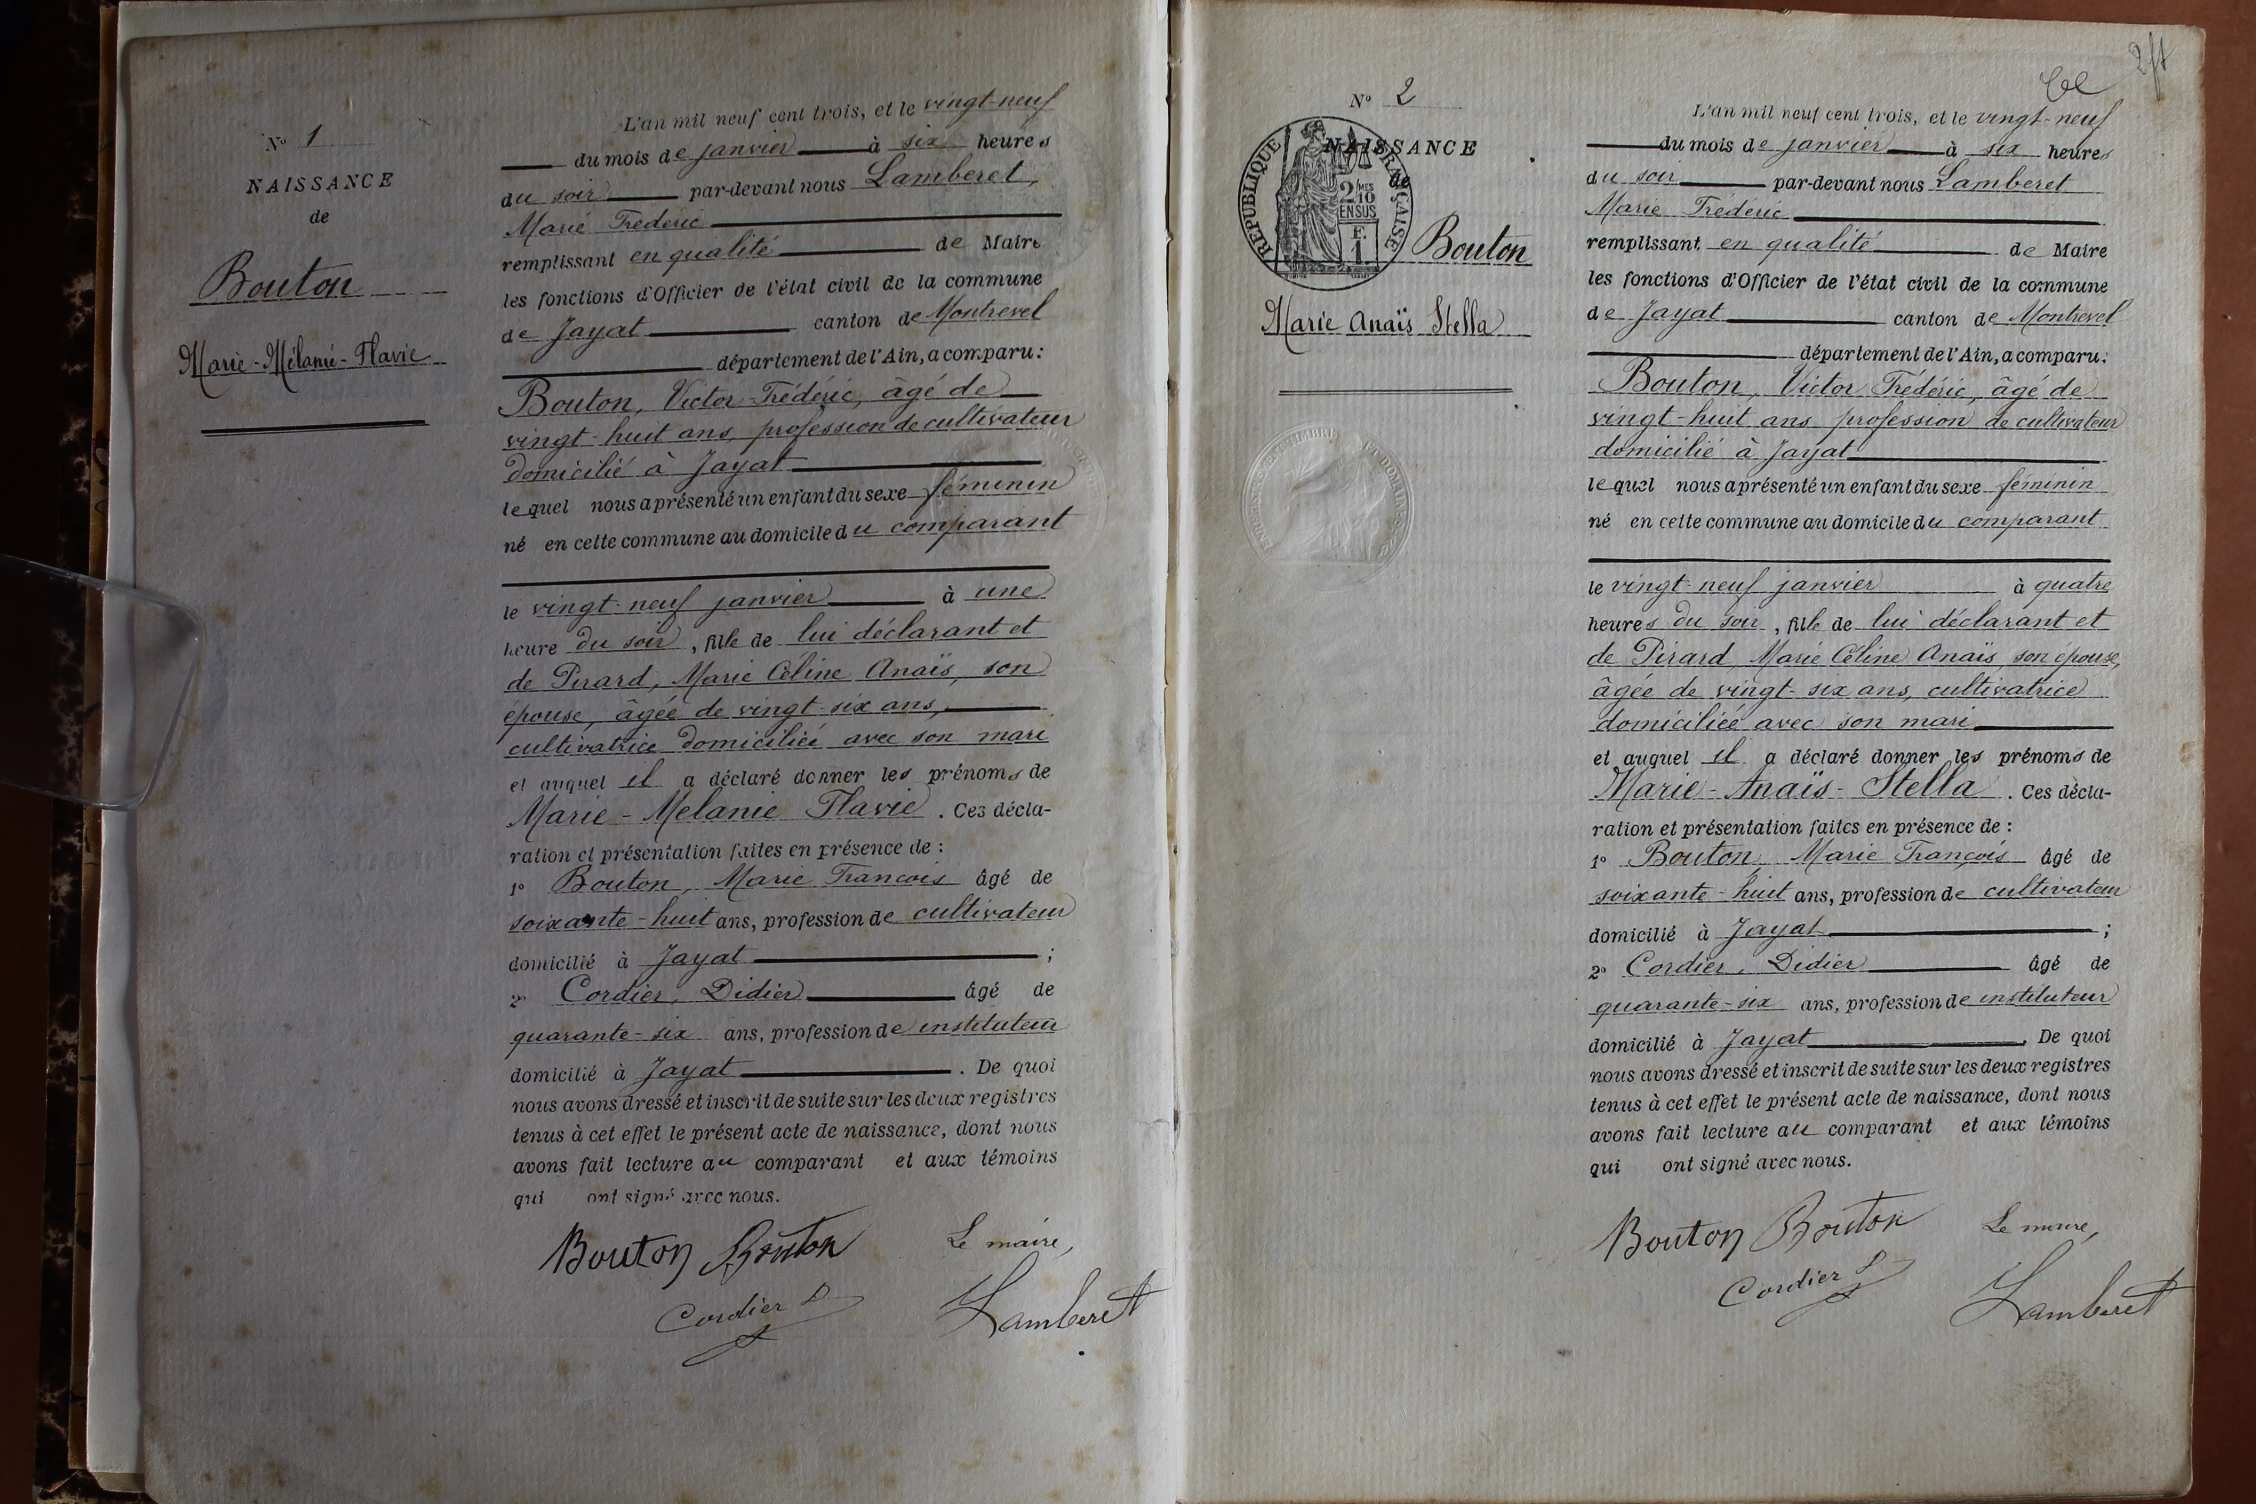 N° 1
NAISSANCE
de
Bouton
Marie-Mélanie-Flavie
L'an mil neuf cent trois, et le vingt-neuf
du mois de janvier à six heures
du soir par-devant nous Lamberet,
Marie Frédéric
remplissant en qualité de Maire
les fonctions d'Officier de l'état civil de la commune
de Jayat canton de Montrevel
département de l'Ain, a comparu:
Bouton, Victor-Frédéric, âgé de
vingt-huit ans, profession de cultivateur
domicilié à Jayat
lequel nous a présenté un enfant du sexe féminin
né en cette commune au domicile du comparant
le vingt-neuf janvier à une
heure du soir, fille de lui déclarant et
de Pirard, Marie Céline Anaïs, son
épouse, âgée de vingt-six ans,
cultivatrice domiciliée avec son mari
et auquel il a déclaré donner les prénoms de
Marie-Mélanie Flavie. Ces décla-
ration et présentation faites en présence de :
1° Bouton, Marie François âgé de
soixante-huit ans, profession de cultivateur
domicilié à Jayat ;
2° Cordier, Didier âgé de
quarante-six ans, profession de instituteur
domicilié à Jayat. De quoi
nous avons dressé et inscrit de suite sur les deux registres
tenus à cet effet le présent acte de naissance, dont nous
avons fait lecture au comparant et aux témoins
qui ont signé avec nous.
Bouton Bouton Le maire,
Cordier D Lamberet
N° 2
NAISSANCE
de
RÉPUBLIQUE FRANÇAISE
2/10 MES
EN SUS
F.
1
Bouton
Marie Anaïs Stella
L'an mil neuf cent trois, et le vingt-neuf
du mois de janvier à six heures
du soir par-devant nous Lamberet
Marie Frédéric
remplissant en qualité de Maire
les fonctions d'Officier de l'état civil de la commune
de Jayat canton de Montrevel
département de l'Ain, a comparu:
Bouton, Victor Frédéric, âgé de
vingt-huit ans profession de cultivateur
domicilié à Jayat
lequel nous a présenté un enfant du sexe féminin
né en cette commune au domicile du comparant
le vingt-neuf janvier à quatre
heures du soir, fille de lui déclarant et
de Pirard, Marie Céline Anaïs son épouse,
âgée de vingt-six ans, cultivatrice
domiciliée avec son mari
et auquel il a déclaré donner les prénoms de
Marie-Anaïs-Stella. Ces décla-
ration et présentation faites en présence de :
1° Bouton, Marie François âgé de
soixante-huit ans, profession de cultivateur
domicilié à Jayat ;
2° Cordier, Didier âgé de
quarante-six ans, profession de instituteur
domicilié à Jayat. De quoi
nous avons dressé et inscrit de suite sur les deux registres
tenus à cet effet le présent acte de naissance, dont nous
avons fait lecture au comparant et aux témoins
qui ont signé avec nous.
Bouton Bouton Le maire,
Cordier D Lamberet